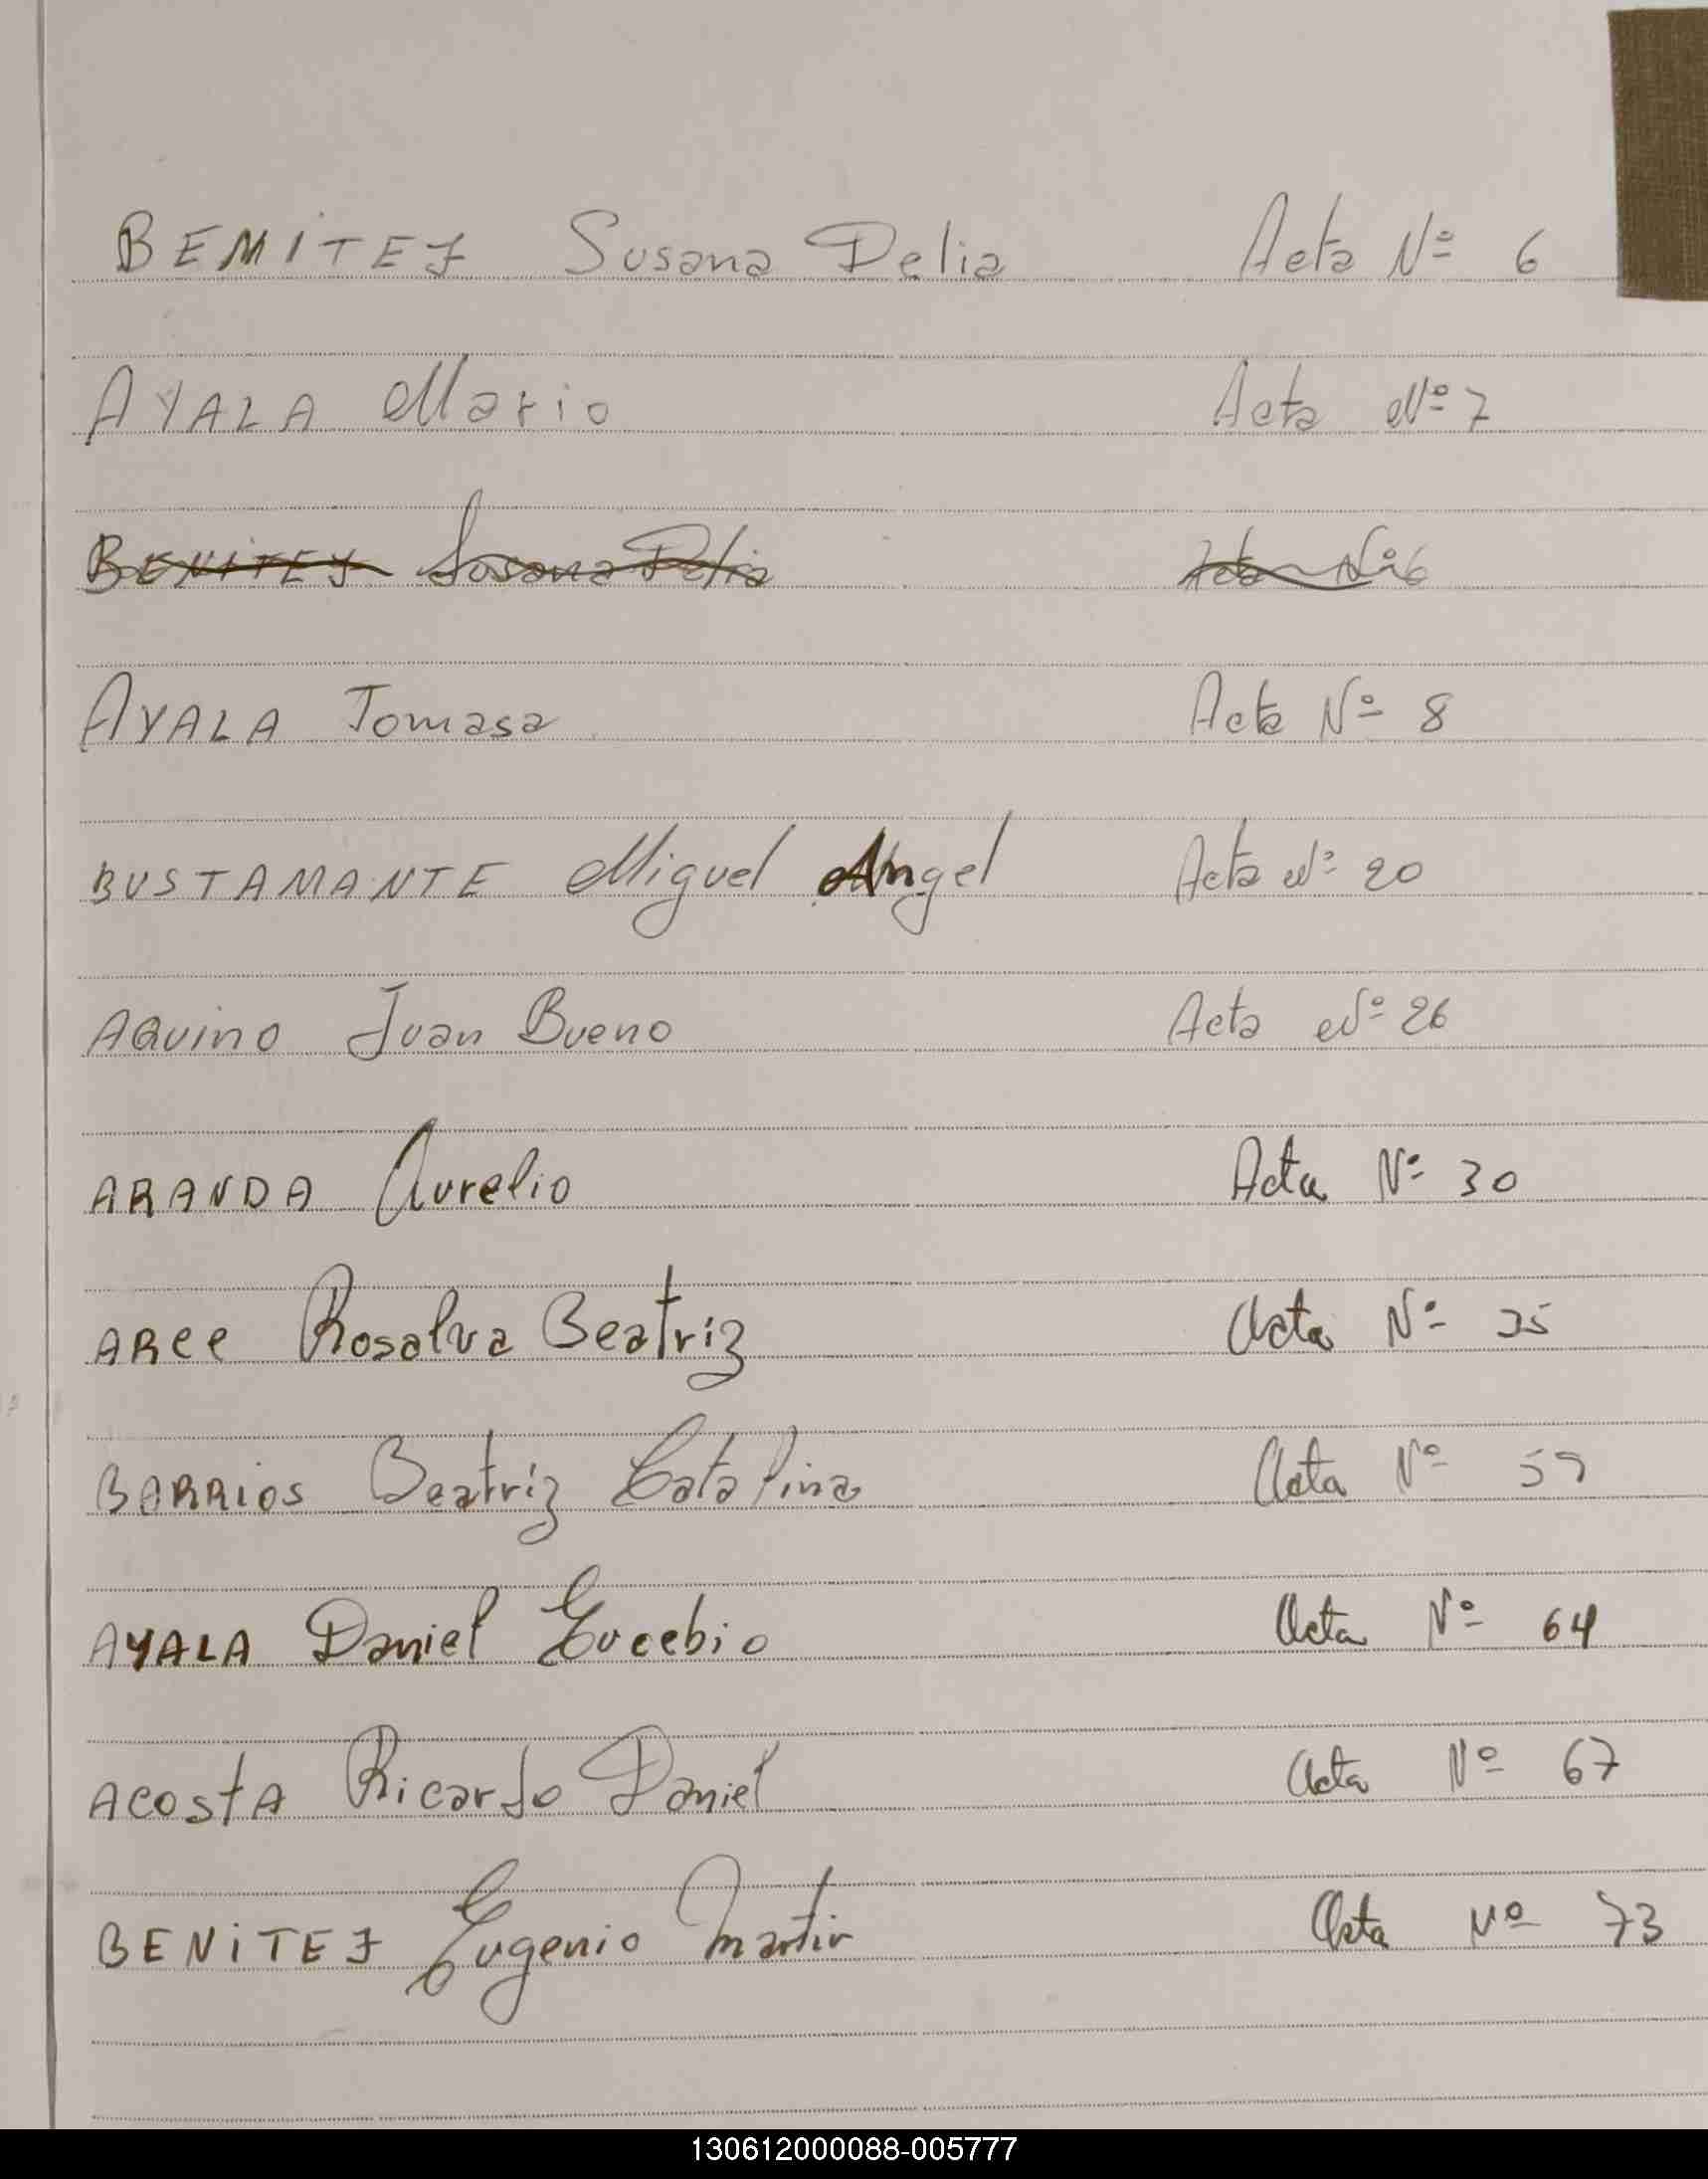 BEMITEZ Susana Delia Acta Nº 6
AYALA Mario Acta Nº 7
BENITEZ Susana Delia Acta Nº 6
AYALA Tomasa Acta Nº 8
BUSTAMANTE Miguel Angel Acta Nº 20
AQUINO Juan Bueno Acta Nº 26
ARANDA Aurelio Acta Nº 30
ARCE Rosalva Beatriz Acta Nº 35
BARRIOS Beatriz Catalina Acta Nº 59
AYALA Daniel Eucebio Acta Nº 64
ACOSTA Ricardo Daniel Acta Nº 67
BENITEZ Eugenio Martin Acta Nº 73
130612000088-005777